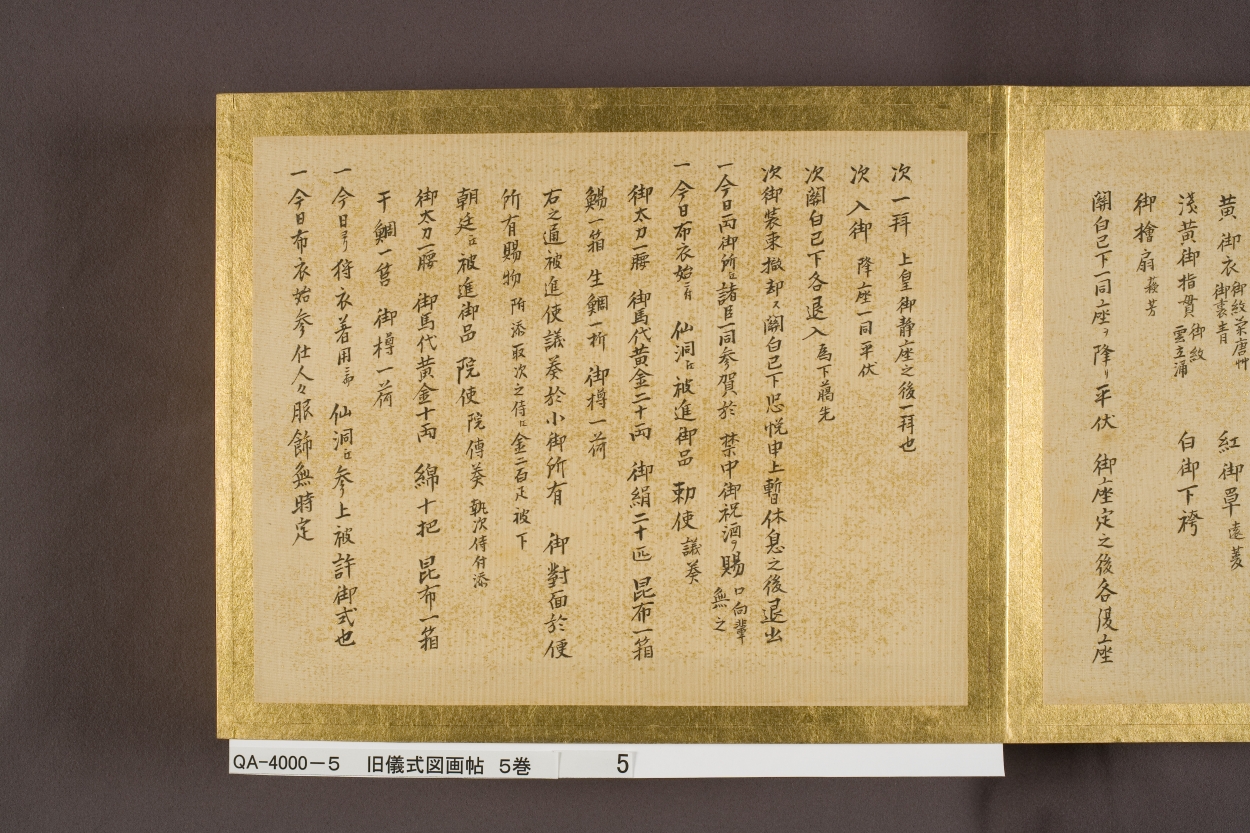 黄御衣 御紋菜唐艸 御裏青 紅御單 遠菱
淺黄御指貫 御紋 雲立涌 白御下袴
御檜扇 莪芳
關白已下一同座ヲ降リ平伏 御座定之後各復座
次一拜 上皇御静座之後一拜也
次入御 降座一同平伏
次關白已下各退入 為下﨟先
次御装束撤却ス關白已下恐悦申上暫休息之後退出
一今日両御所江諸臣一同参賀於 禁中御祝酒ヲ賜 口向輩 無之
一今日布衣始ニ付 仙洞江被進御品 勅使 議奏
御太刀一腰 御馬代黄金二十両 御絹二十匹 昆布一箱
鯣一箱 生鯛一折 御樽一荷
右之通被進使議奏於小御所有 御對面於便
所有賜物 附添取次之侍江金二百疋被下
朝廷江被進御品 院使 院傳奏 執次侍付添
御太刀一腰 御馬代黄金十両 綿十把 昆布一箱
干鯛一筥 御樽一荷
一今日ヨリ狩衣着用ニ而 仙洞江参リ上被許御式也
一今日布衣始参仕人々服飾無時定
QA-4000-5 旧儀式図画帖 5巻 5